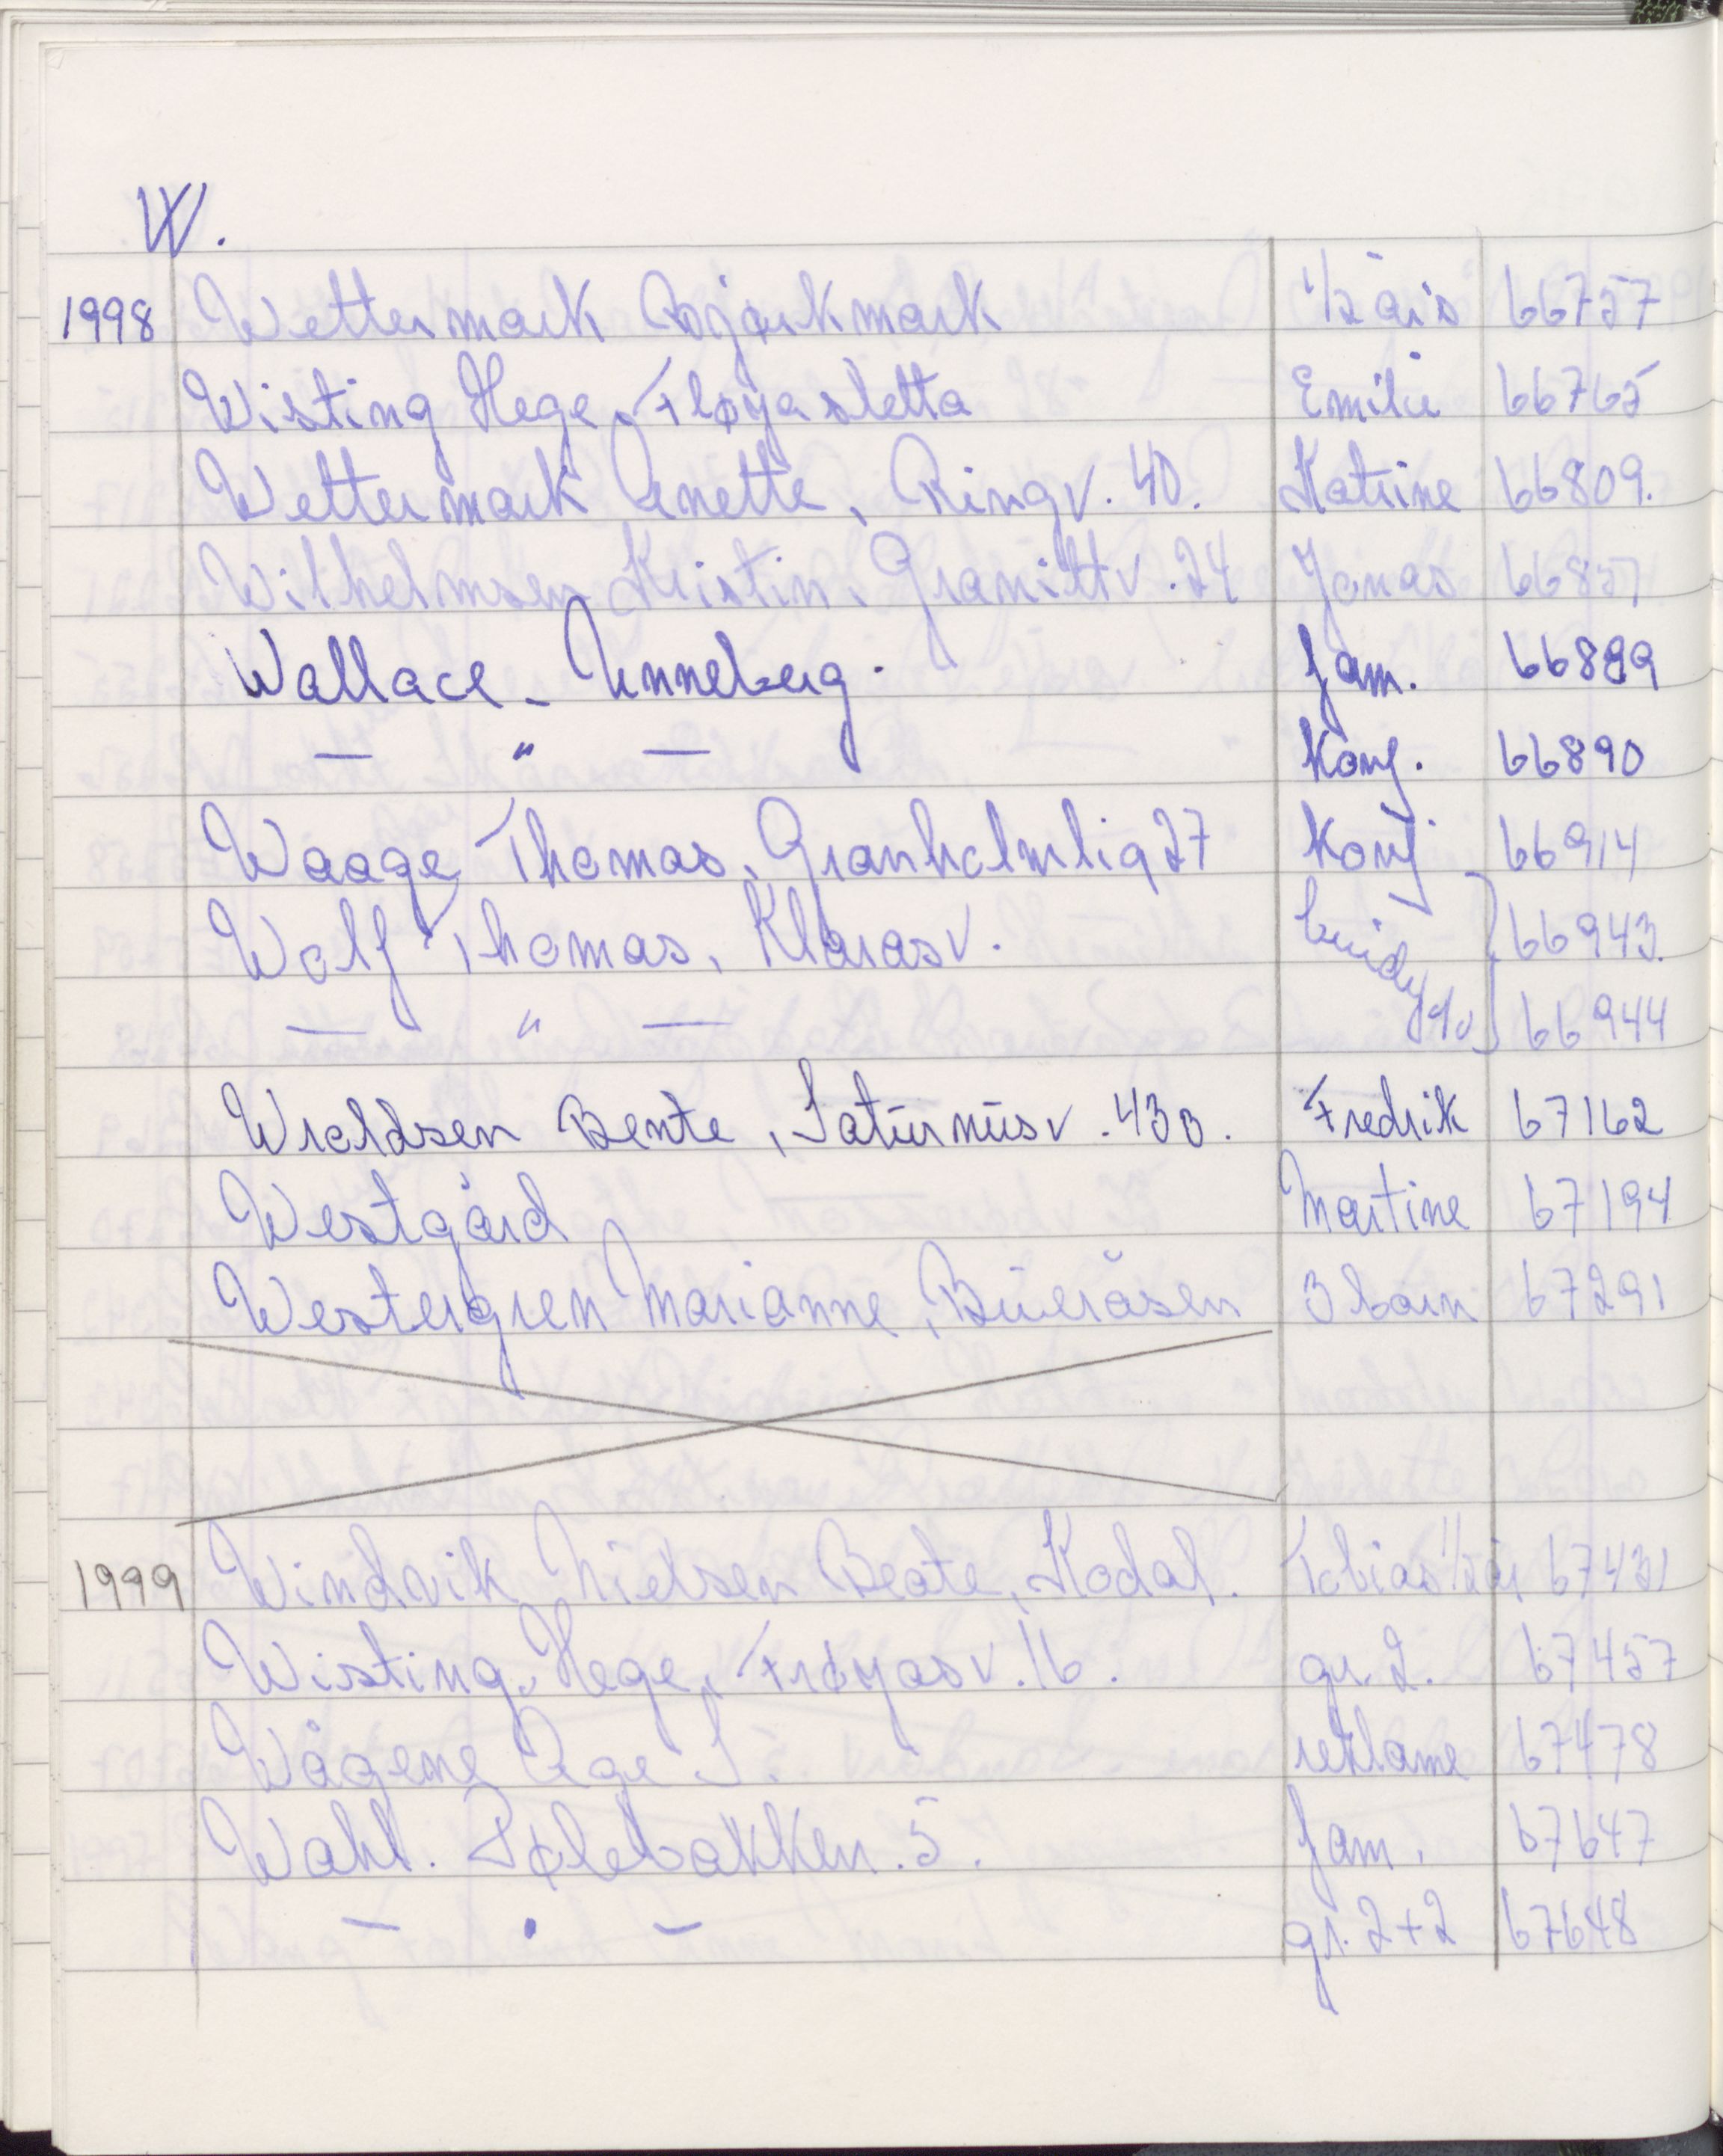 W.
1998 Wettermark Bjørkmark 1/2 års 66757
Wisting Hege, Fløyasletta Emilie 66765
Wettermark Anette, Ringv. 40. Katrine 66809.
Wilhelmsen Kristin, Granittv. 24 Jonas 66857
Wallace - Unneberg. fam. 66889
— " — Konf. 66890
Waage Thomas, Granholmlia 27 Konf. 66914
Wolf Thomas, Klarasv. 66943.
— " — 66944
Wroldsen Bente, Saturnusv. 43B. Fredrik 67162
Westgård Martine 67194
Westergren Marianne, Bueråsen 3 barn 67291
1999 Windvik Nielsen Beate, Kodal. Tobias 1/2 år 67431
Wisting, Hege, Frøyasv. 16. gr. 2. 67457
Wågene Åge S. reklame 67478
Wahl. Pølebakken. 5. fam. 67647
— " — gr. 2+2 67648